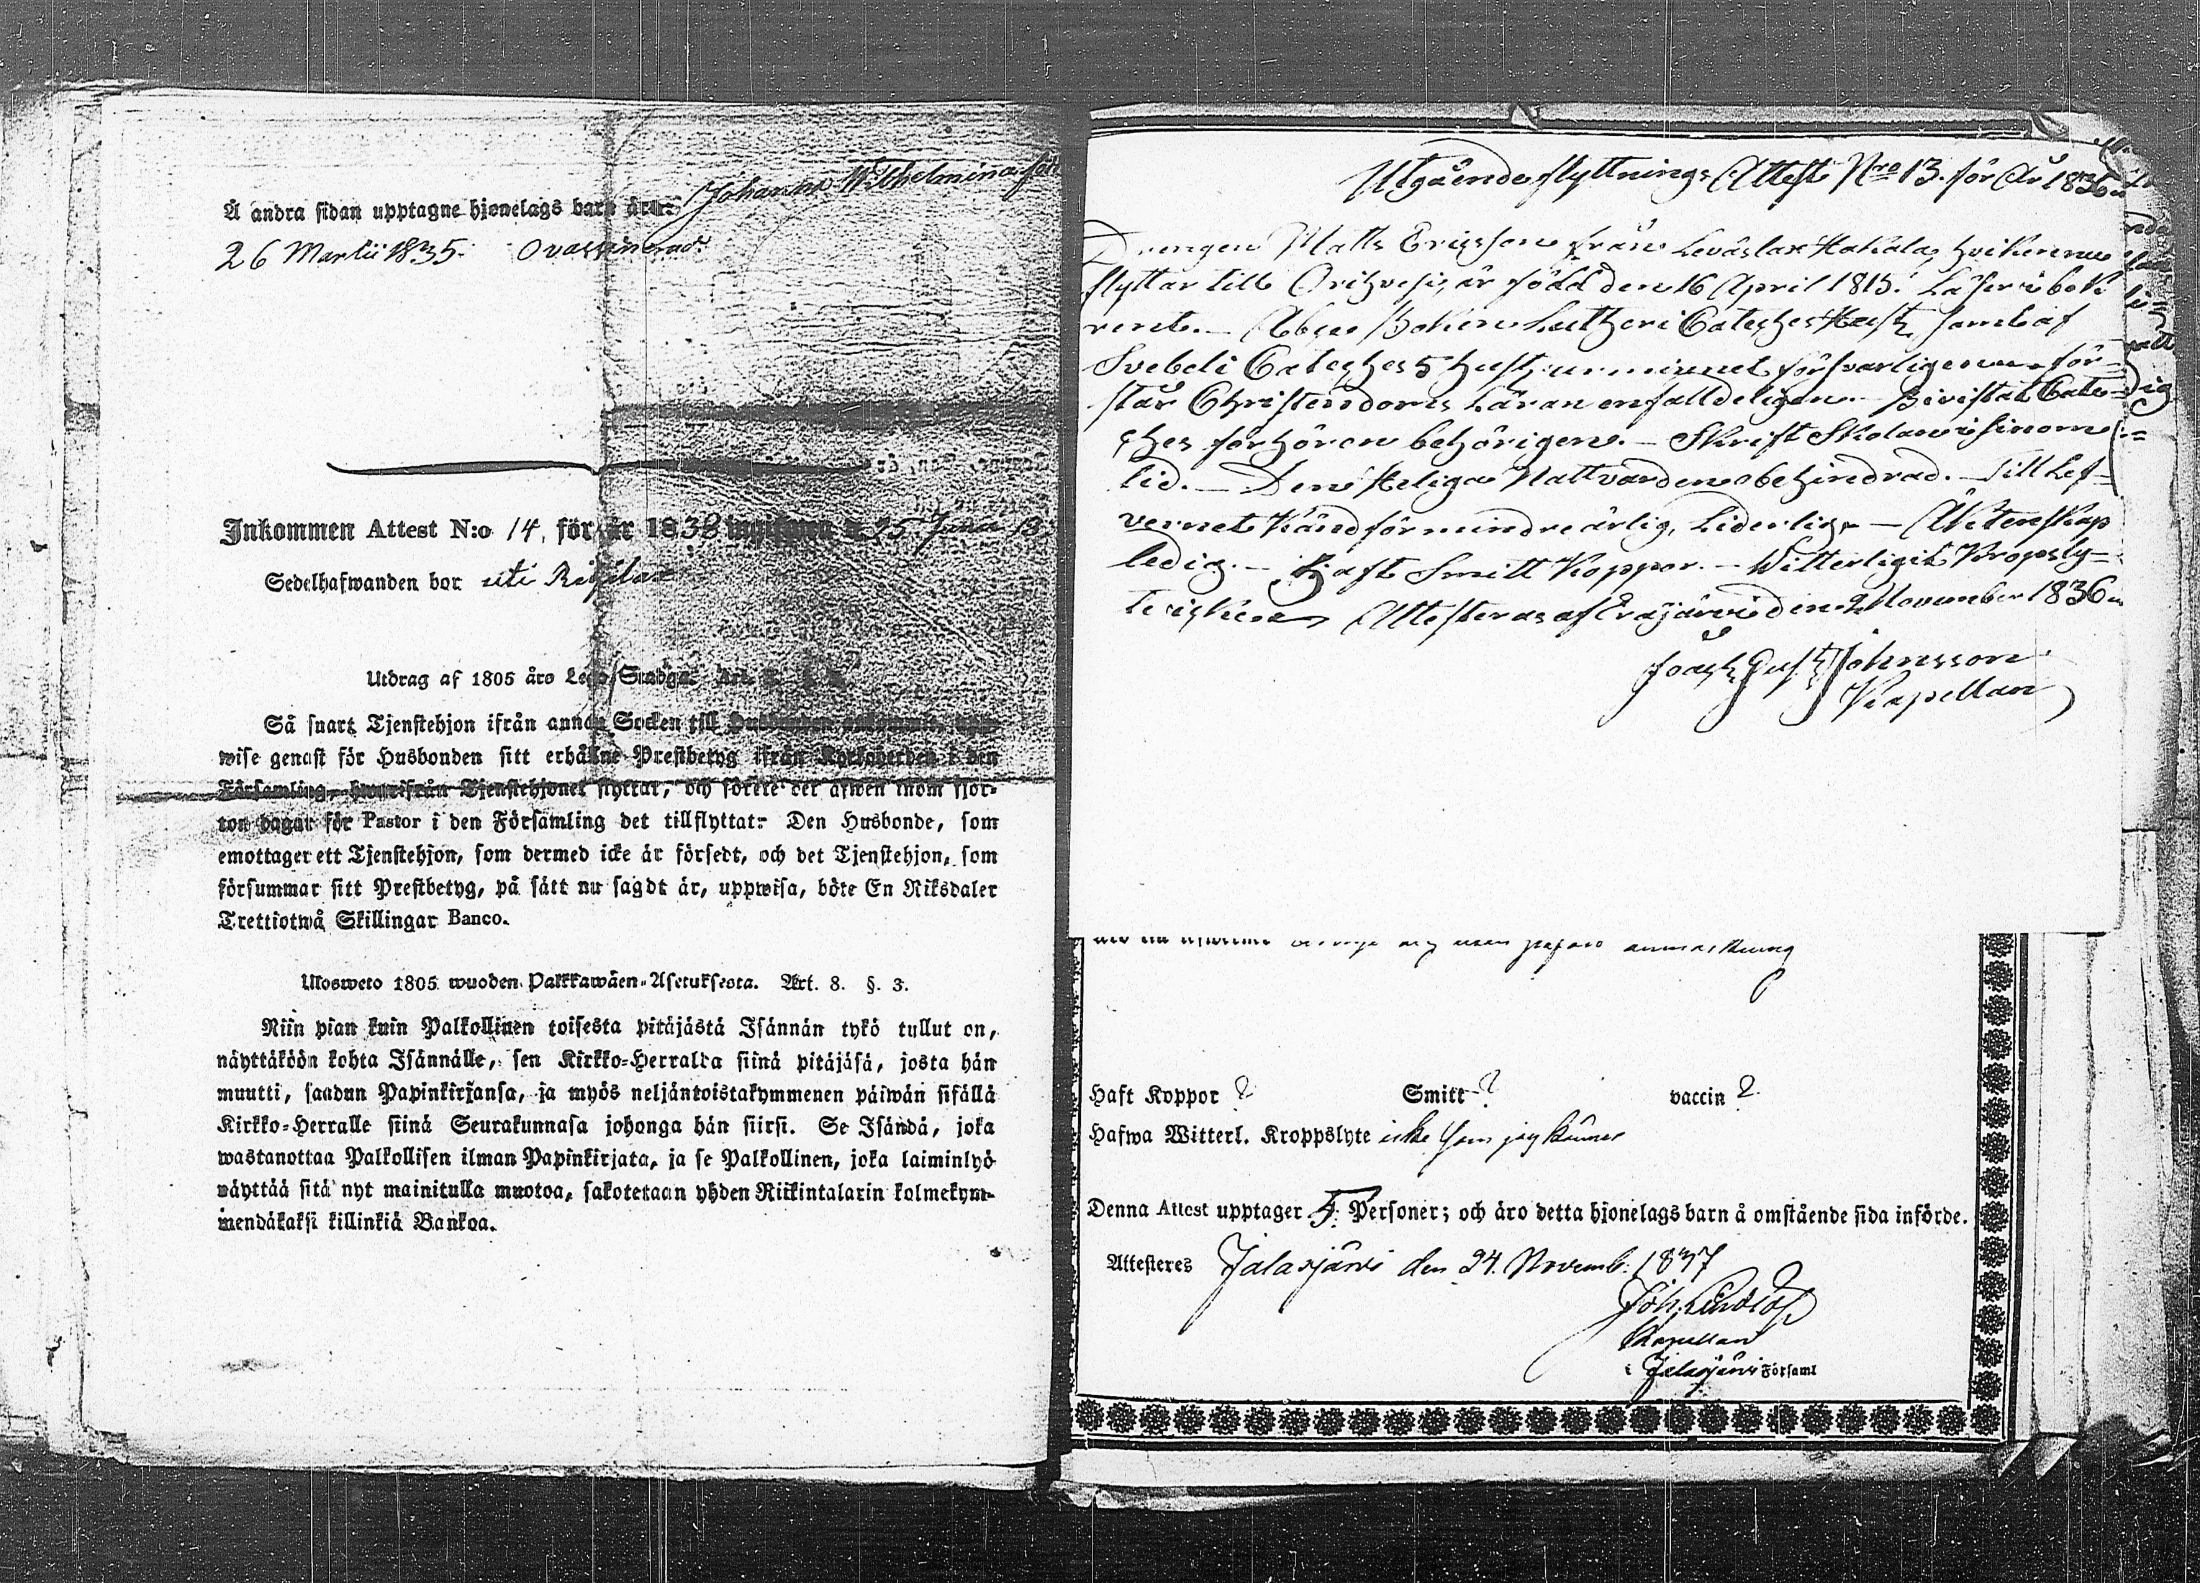 Å andra sidan upptagne hjonelags barn äro: Johanna Wilhelmina föd
26 Martii 1835. Ovaccinerad.
Inkommen Attest N:o 14, för år 1838 25 Junii
Sedelhafwanden bor uti
Utdrag af 1805 års Lego Stadga. Art.
Så snart Tjenstehjon ifrån annan Socken till Husbonden ankommit, upp-
wise genast för Husbonden sitt erhållne Prestbetyg ifrån Kyrkoherden i den
Församling, hwarifrån Tjenstehjonet flyttar, och förete det äfwen inom fjor-
ton dagar för Pastor i den Församling det tillflyttat: Den Husbonde, som
emottager ett Tjenstehjon, som dermed icke är försedt, och det Tjenstehjon, som
försummar sitt Prestbetyg, på sätt nu sagdt är, uppwisa, böte En Riksdaler
Trettiotwå Skillingar Banco.
Ulosweto 1805 wuoden Palkkawäen-Asetuksesta. Art. 8. §. 3.
Niin pian kuin Palkollinen toisesta pitäjästä Isännän tykö tullut on,
näyttäköön kohta Isännälle, sen Kirkko-Herralta siinä pitäjäsä, josta hän
muutti, saadun Papinkirjansa, ja myös neljäntoistakymmenen päiwän sisällä
Kirkko-Herralle siinä Seurakunnasa johonga hän siirsi. Se Isändä, joka
wastanottaa Palkollisen ilman Papinkirjata, ja se Palkollinen, joka laiminlyö
näyttää sitä nyt mainitulla muotoa, sakotetaan yhden Riikintalarin kolmekym-
mendäkaksi killinkiä Bankoa.
Utgående flyttnings Attest Nro 13. för År 1836
Drengen Matts Ericsson från Leväslax Hakala, hvilken nu
flyttar till Orihvesi, är född den 16 April 1815. Läser i bok
rent. Abc Boken Lutheri Cateches samt af
Svebeli Cateches 5 ur minnet försvarligen för-
står Christendoms Läran enfalldeligen. Bivistat Cate-
ches förhören behörigen. Skrift Skolan i sinom
tid. Den Heliga Nattvarden obehindrad. Till Lef-
vernet känd för mindre ärlig, liderlig. Äktenskap
ledig. Haft Smitt Koppor. Witterligit Kropsly-
te Attesteras af Eräjärvi den 2 November 1836
Johnsson
Kapellan
anmärkning
Haft Koppor ? Smitt ? vaccin ?
Hafwa Witterl. Kroppslyte icke som jag känner
Denna Attest upptager 5. Personer; och äro detta hjonelags barn å omstående sida införde.
Attesteres Jalasjärvi den 24. Novemb: 1837
Joh. Lindlöf
Kapellan
i Jalasjärvi Församl